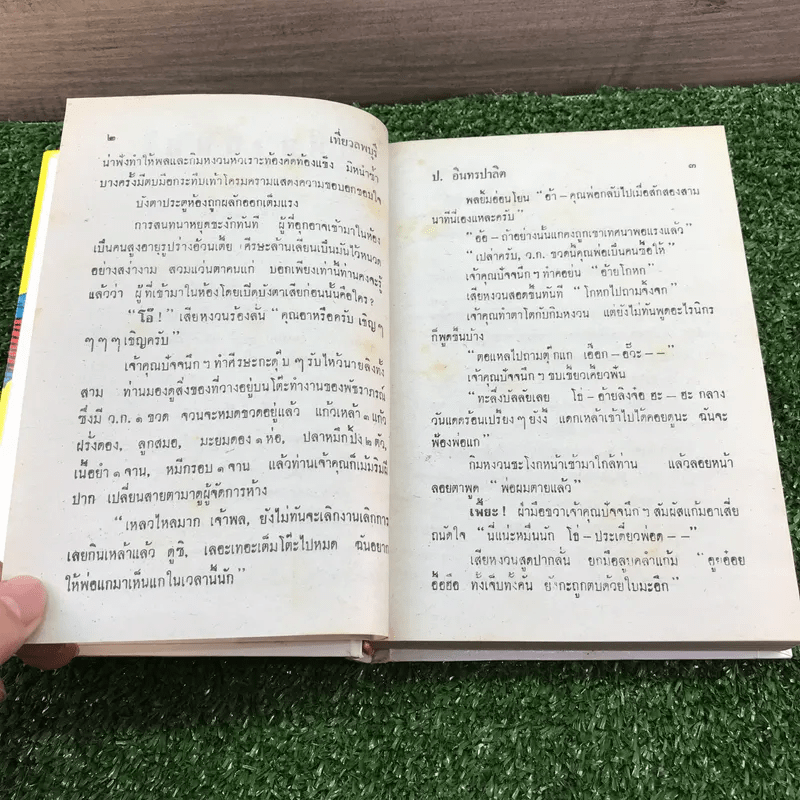 ๒
เที่ยวลพบุรี
น่าฟังทำให้พลและกิมหงวนหัวเราะท้องคัดท้องแข็ง มิหนำซ้ำ
บางครั้งมีตบมือกระทืบเท้าโครมครามแสดงความชอบอกชอบใจ
บังตาประตูห้องถูกผลักออกเต็มแรง
การสนทนาหยุดชะงักทันที ผู้ที่อุกอาจเข้ามาในห้อง
เป็นคนสูงอายุรูปร่างอ้วนเตี้ย ศีรษะล้านเลี่ยนเป็นมันไว้หนวด
อย่างสง่างาม สวมแว่นตาคนแก่ บอกเพียงเท่านี้ท่านคงจะรู้
แล้วว่า ผู้ที่เข้ามาในห้องโดยเปิดบังตาเสียก่อนนั้นคือใคร?
“โอ๊! ” เสี่ยหงวนร้องลั่น “คุณอาหรือครับ เชิญ ๆ
ๆ ๆ ๆ เชิญครับ”
เจ้าคุณปัจจนึก ฯ ทำศีรษะกะดุ๊บ ๆ รับไหว้นายลิงทั้ง
สาม ท่านมองดูสิ่งของที่วางอยู่บนโต๊ะทำงานของพัชราภรณ์
ซึ่งมี ว.ก. ๑ ขวด จวนจะหมดขวดอยู่แล้ว แก้วเหล้า ๑ แก้ว
ฝรั่งดอง, ลูกสมอ, มะยมดอง ๑ ห่อ, ปลาหมึกปิ้ง ๒ ตัว,
เนื้อยำ ๑ จาน, หมี่กรอบ ๑ จาน แล้วท่านเจ้าคุณก็เม้มริมฝี
ปาก เปลี่ยนสายตามาดูผู้จัดการห้าง
“เหลวไหลมาก เจ้าพล, ยังไม่ทันจะเลิกงานเลิกการ
เลยกินเหล้าแล้ว ดูซิ, เลอะเทอะเต็มโต๊ะไปหมด ฉันอยาก
ให้พ่อแกมาเห็นแกในเวลานี้นัก”
ป. อินทรปาลิต
๓
พลยิ้มอ่อนโยน “อ้า – คุณพ่อกลับไปเมื่อสักสองสาม
นาทีนี่เองแหละครับ”
“อ้อ – ถ้าอย่างนั้นแกคงถูกเขาเทศนาพอแรงแล้ว”
“เปล่าครับ, ว.ก. ขวดนี้คุณพ่อเป็นคนซื้อให้”
เจ้าคุณปัจจนึก ฯ ทำคอย่น “อ้ายโกหก”
เสี่ยหงวนสอดขึ้นทันที “โกหกไปถามจิ้งจก”
เจ้าคุณทำตาโตกับกิมหงวน แต่ยังไม่ทันพูดอะไรนิกร
ก็พูดขึ้นบ้าง
“ตอแหลไปถามตุ๊กแก เอื๊อก – อั๊วะ – –”
เจ้าคุณปัจจนึก ฯ ขบเขี้ยวเคี้ยวฟัน
“ทะลึ่งบัลลัยเลย โธ่ – อ้ายลิงจ๋อ ฮะ – ฮะ กลาง
วันแดดร้อนเปรี้ยง ๆ ยังงี้ แดกเหล้าเข้าไปได้คอยดูนะ ฉันจะ
ฟ้องพ่อแก”
กิมหงวนชะโงกหน้าเข้ามาใกล้ท่าน แล้วลอยหน้า
ลอยตาพูด “พ่อผมตายแล้ว”
เพี๊ยะ! ฝ่ามือขวาเจ้าคุณปัจจนึก ฯ สัมผัสแก้มอาเสี่ย
ถนัดใจ “นี่แน่ะหมื่นนัก โธ่ – ประเดี๋ยวพ่อด – –”
เสี่ยหงวนสูดปากลั่น ยกมือลูบคลำแก้ม “อูยอ๋อย
อื้อฮือ ทั้งเจ็บทั้งคัน ยังกะถูกตบด้วยใบมะอึก”